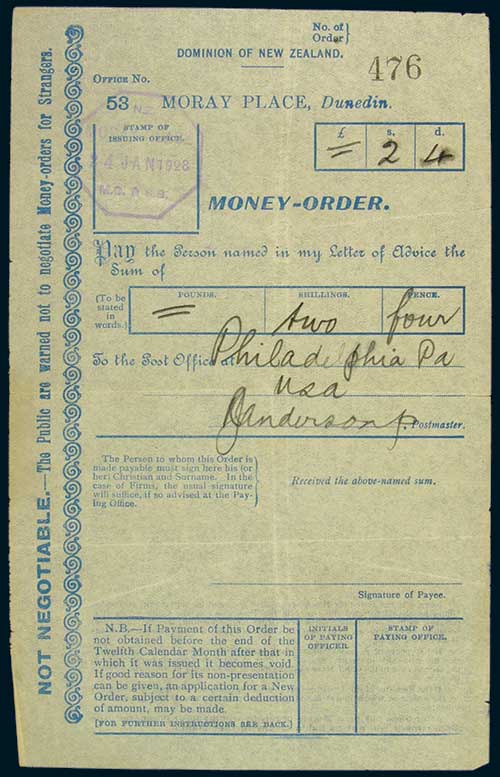 No. of
Order
476
DOMINION OF NEW ZEALAND.
OFFICE No.
53 MORAY PLACE, Dunedin.
STAMP OF
ISSUING OFFICE.
N.Z.
24 JAN 1928
£ s. d.
= 2 4
MONEY-ORDER.
Pay the Person named in my Letter of Advice the
Sum of
(To be
stated
in
words.)
POUNDS. SHILLINGS. PENCE.
= two four
To the Post Office at Philadelphia Pa
USA
Janderson p. Postmaster.
The Person to whom this Order is
made payable must sign here his (or
her) Christian and Surname. In the
case of Firms, the usual signature
will suffice, if so advised at the Pay-
ing Office.
Received the above-named sum.
Signature of Payee.
N.B.—If Payment of this Order be
not obtained before the end of the
Twelfth Calendar Month after that in
which it was issued it becomes void.
If good reason for its non-presentation
can be given, an application for a New
Order, subject to a certain deduction
of amount, may be made.
[FOR FURTHER INSTRUCTIONS SEE BACK.]
INITIALS
OF PAYING
OFFICER.
STAMP OF
PAYING OFFICE.
NOT NEGOTIABLE.—The Public are warned not to negotiate Money-orders for Strangers.